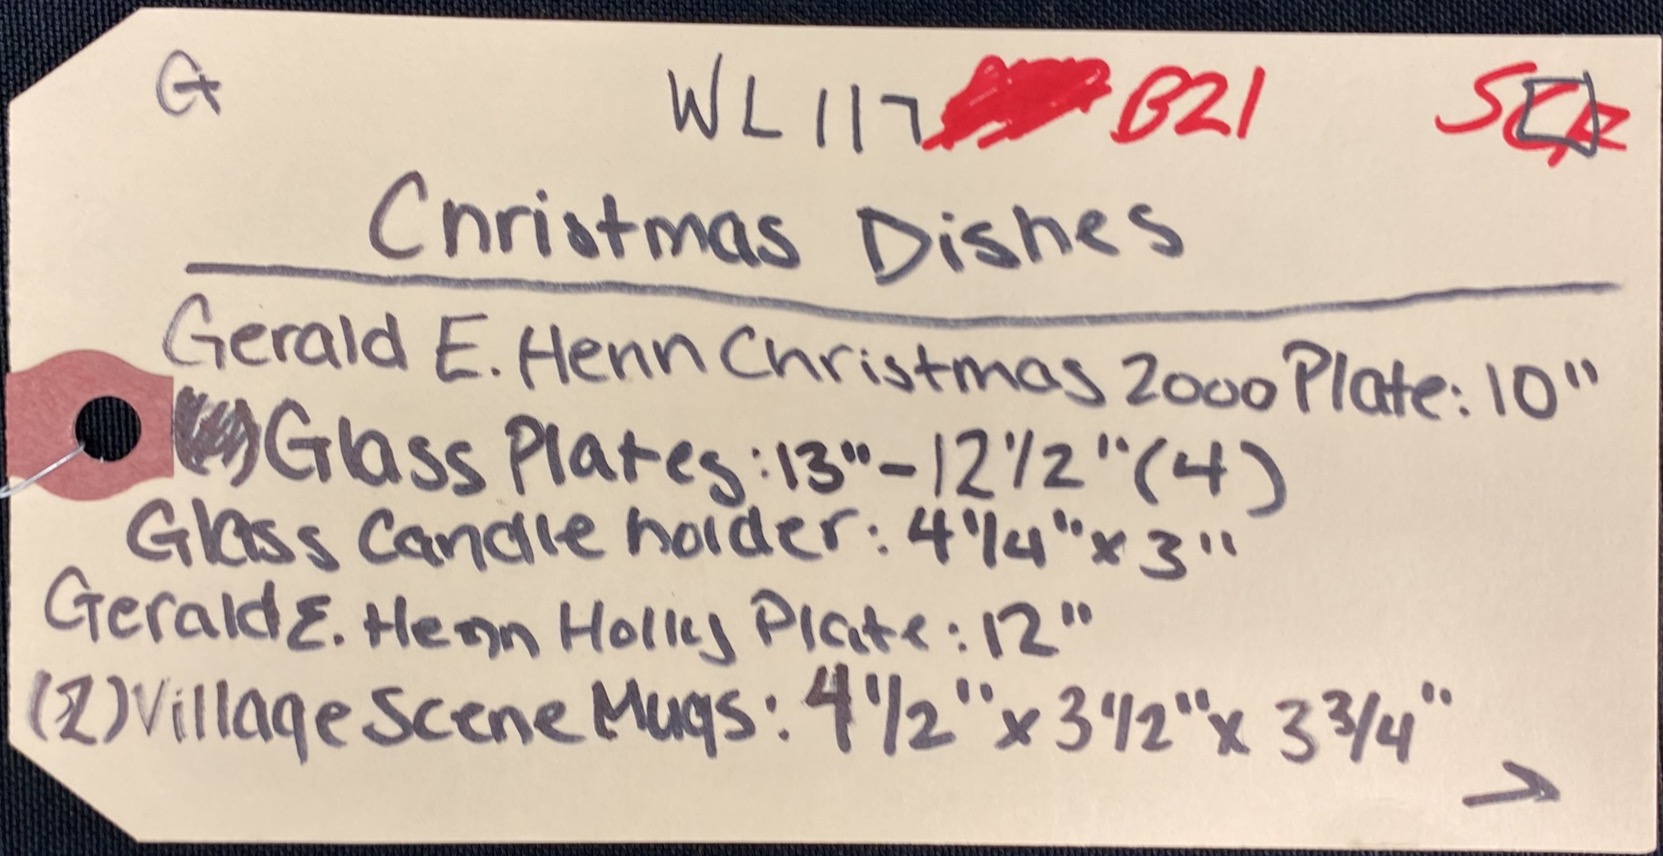 G WL 117 B21
Christmas Dishes
Gerald E. Henn Christmas 2000 Plate: 10"
Glass Plates: 13" - 12 1/2" (4)
Glass Candle holder: 4 1/4" x 3"
Gerald E. Henn Holly Plate: 12"
(2) Village Scene Mugs: 4 1/2" x 3 1/2" x 3 3/4"
→